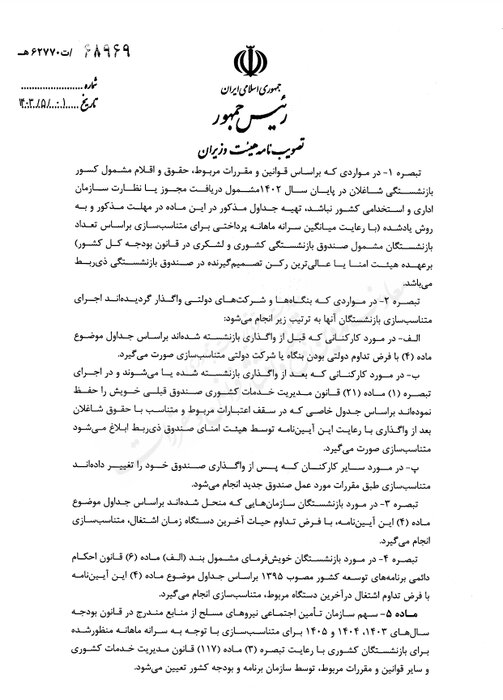 ۶۸۹۶۹ /ت۶۲۷۷۰هـ
جمهوری اسلامی ایران
رئیس جمهور
تصویب نامه هیئت وزیران
شماره
تاریخ ۱۴۰۳/۵/۰۱
تبصره ۱- در مواردی که براساس قوانین و مقررات مربوط، حقوق و اقلام مشمول کسور
بازنشستگی شاغلان در پایان سال ۱۴۰۲مشمول دریافت مجوز یا نظارت سازمان
اداری و استخدامی کشور نباشد، تهیه جداول مذکور در این ماده در مهلت مذکور و به
روش یادشده (با رعایت میانگین سرانه ماهانه پرداختی برای متناسب‌سازی براساس تعداد
بازنشستگان مشمول صندوق بازنشستگی کشوری و لشکری در قانون بودجه کل کشور)
برعهده هیئت امنا یا عالی‌ترین رکن تصمیم‌گیرنده در صندوق بازنشستگی ذی‌ربط
می‌باشد.
تبصره ۲- در مواردی که بنگاه‌ها و شرکت‌های دولتی واگذار گردیده‌اند اجرای
متناسب‌سازی بازنشستگان آنها به ترتیب زیر انجام می‌شود:
الف- در مورد کارکنانی که قبل از واگذاری بازنشسته شده‌اند براساس جداول موضوع
ماده (۴) با فرض تداوم دولتی بودن بنگاه یا شرکت دولتی متناسب‌سازی صورت می‌گیرد.
ب- در مورد کارکنانی که بعد از واگذاری بازنشسته شده یا می‌شوند و در اجرای
تبصره (۱) ماده (۲۱) قانون مدیریت خدمات کشوری صندوق قبلی خویش را حفظ
نموده‌اند براساس جدول خاصی که در سقف اعتبارات مربوط و متناسب با حقوق شاغلان
بعد از واگذاری با رعایت این آیین‌نامه توسط هیئت امنای صندوق ذی‌ربط ابلاغ می‌شود
متناسب‌سازی صورت می‌گیرد.
پ- در مورد سایر کارکنان که پس از واگذاری صندوق خود را تغییر داده‌اند
متناسب‌سازی طبق مقررات مورد عمل صندوق جدید انجام می‌شود.
تبصره ۳- در مورد بازنشستگان سازمان‌هایی که منحل شده‌اند براساس جداول موضوع
ماده (۴) این آیین‌نامه، با فرض تداوم حیات آخرین دستگاه زمان اشتغال، متناسب‌سازی
انجام می‌گیرد.
تبصره ۴- در مورد بازنشستگان خویش‌فرمای مشمول بند (الف) ماده (۶) قانون احکام
دائمی برنامه‌های توسعه کشور مصوب ۱۳۹۵ براساس جداول موضوع ماده (۴) این آیین‌نامه
با فرض تداوم اشتغال درآخرین دستگاه مربوط، متناسب‌سازی انجام می‌گیرد.
ماده ۵- سهم سازمان تأمین اجتماعی نیروهای مسلح از منابع مندرج در قانون بودجه
سال‌های ۱۴۰۳، ۱۴۰۴ و ۱۴۰۵ برای متناسب‌سازی با توجه به سرانه ماهانه منظورشده
برای بازنشستگان کشوری با رعایت تبصره (۳) ماده (۱۱۷) قانون مدیریت خدمات کشوری
و سایر قوانین و مقررات مربوط، توسط سازمان برنامه و بودجه کشور تعیین می‌شود.